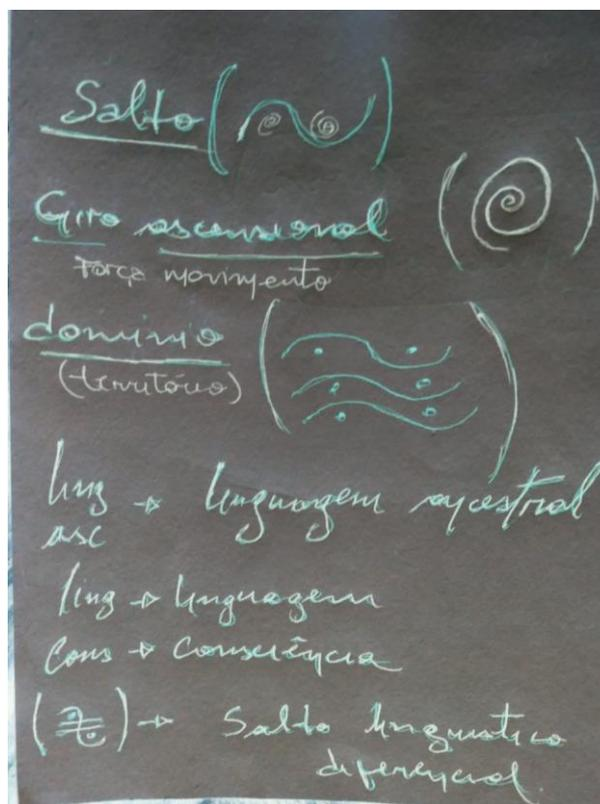 Salto
Giro ascensional
Força movimento
domínio
(território)
ling → linguagem ancestral
asc
ling → linguagem
Cons → Consciência
→ Salto linguístico
diferencial.